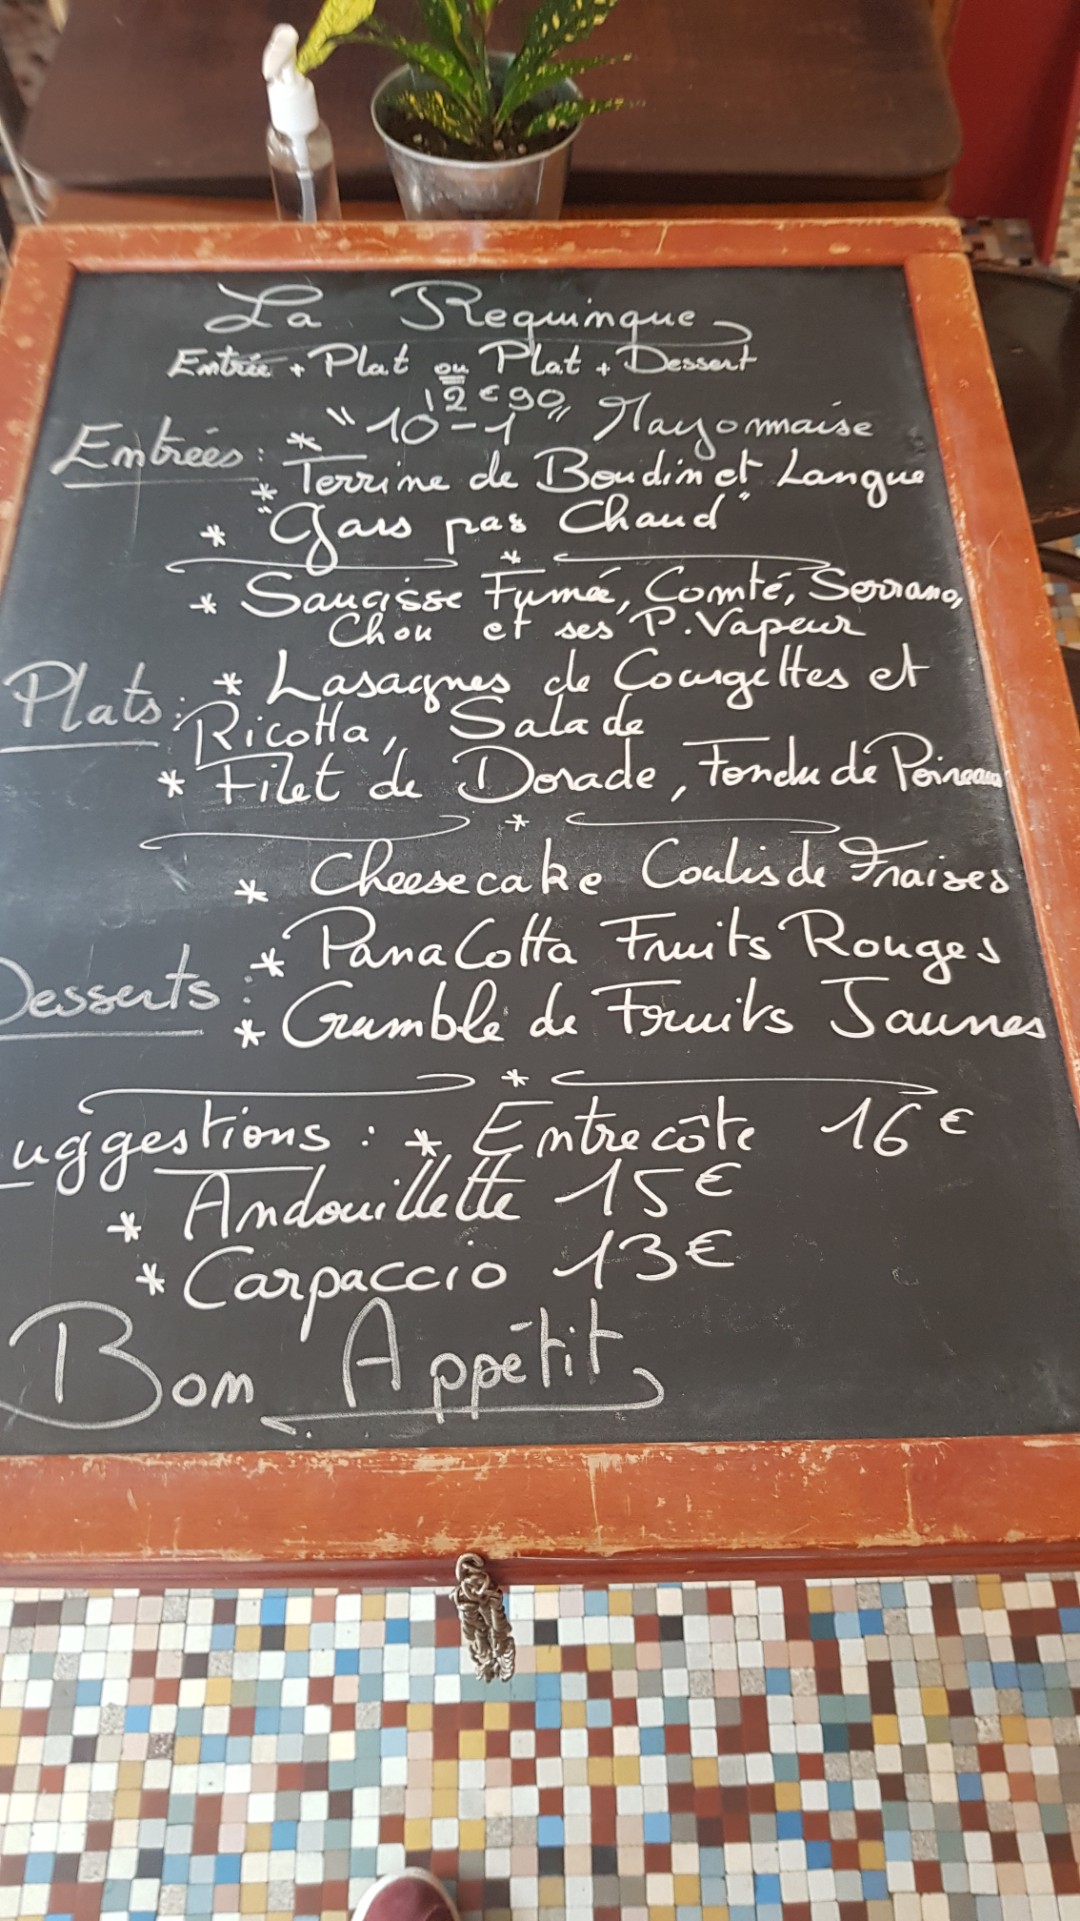 La Requinque
Entrée + Plat ou Plat + Dessert
12€90
Entrées : * "10-1" Mayonnaise
* Terrine de Boudin et Langue
* "Gars pas Chaud"
*
* Saucisse Fumée, Comté, Serrano,
Chou et ses P. Vapeur
Plats : * Lasagnes de Courgettes et
Ricotta, Salade
* Filet de Dorade, Fondu de Poireaux
*
* Cheesecake Coulis de Fraises
Desserts : * Pana Cotta Fruits Rouges
* Crumble de Fruits Jaunes
*
uggestions : * Entrecôte 16€
* Andouillette 15€
* Carpaccio 13€
Bon Appétit